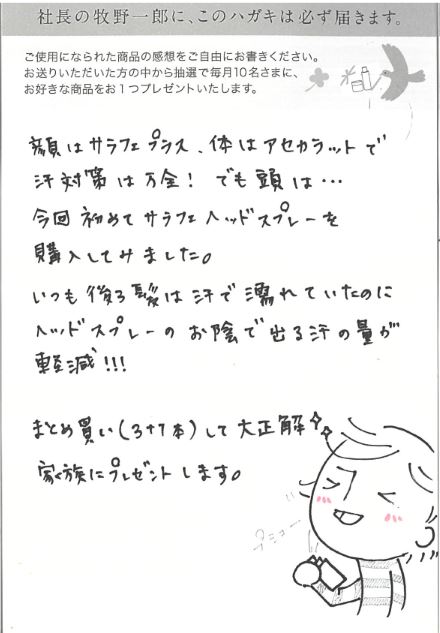 社長の牧野一郎に、このハガキは必ず届きます。
ご使用になられた商品の感想をご自由にお書きください。
お送りいただいた方の中から抽選で毎月10名さまに、
お好きな商品をお1つプレゼントいたします。
顔はサラフェプラス、体はアセカラットで
汗対策は万全！でも頭は…
今回初めてサラフェヘッドスプレーを
購入してみました。
いつも後ろ髪は汗で濡れていたのに
ヘッドスプレーのお陰で出る汗の量が
軽減!!!
まとめ買い(3+1本)して大正解
家族にプレゼントします。
プシュー